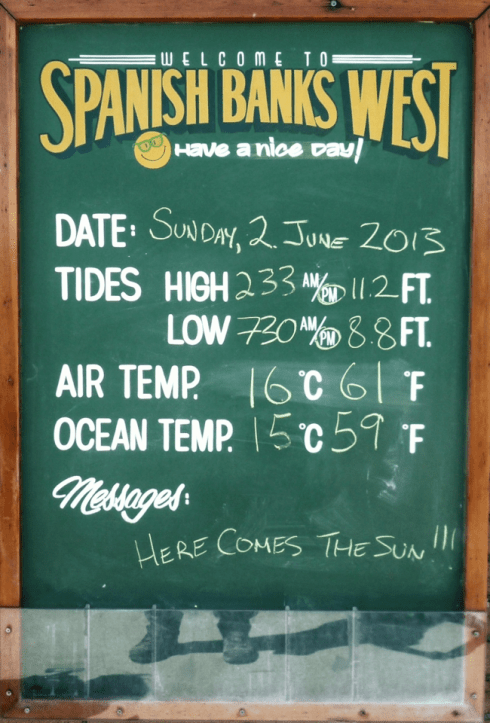 WELCOME TO
SPANISH BANKS WEST
Have a nice Day!
DATE: SUNDAY, 2. JUNE 2013
TIDES HIGH 233 AM/PM 11.2 FT.
LOW 730 AM/PM 8.8 FT.
AIR TEMP. 16 °C 61 °F
OCEAN TEMP. 15 °C 59 °F
Messages:
HERE COMES THE SUN!!!